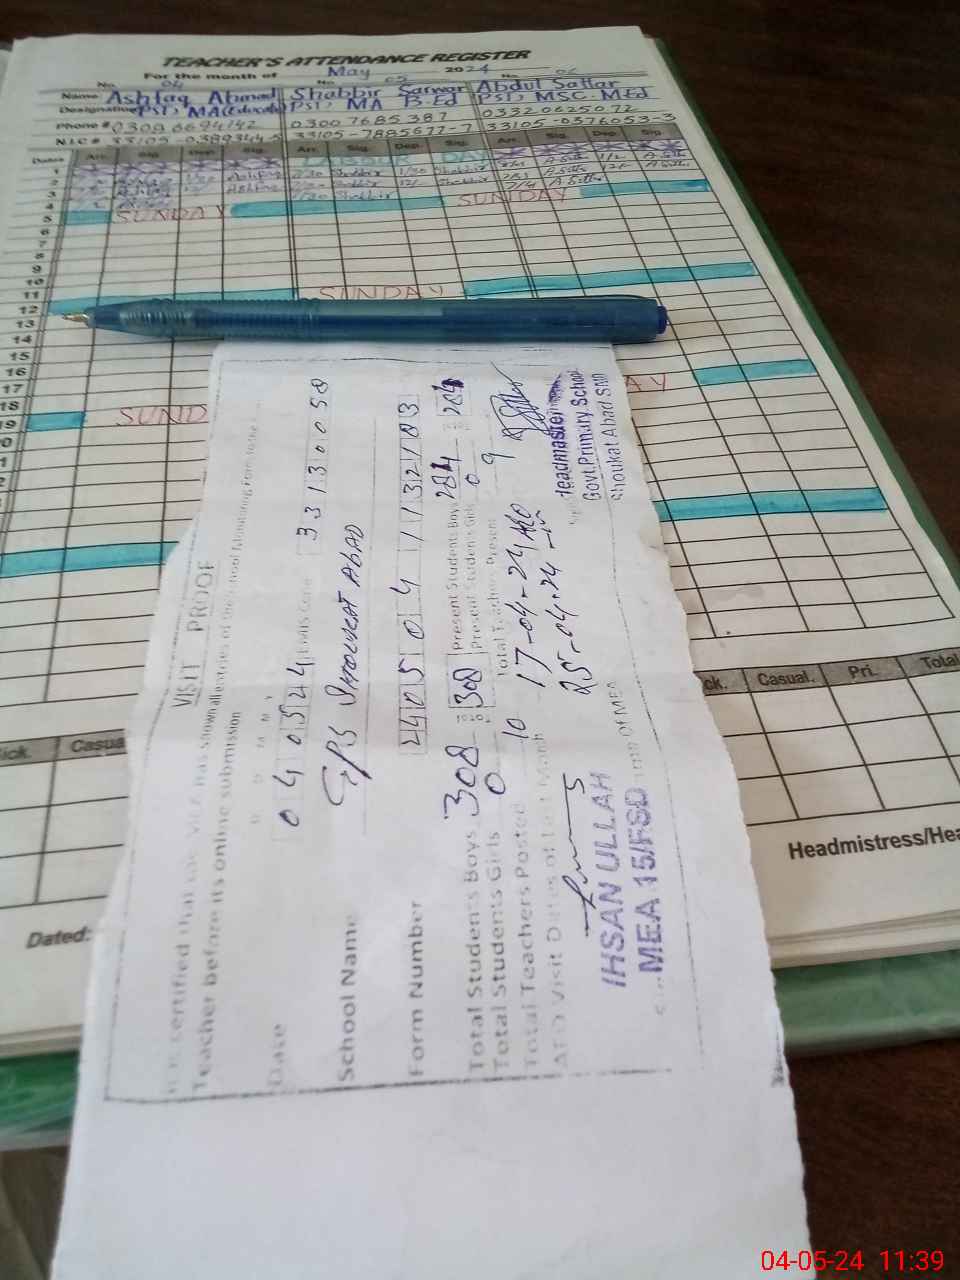 TEACHER'S ATTENDANCE REGISTER
For the month of May 2024
No. 04 No. 05 No. 06
Name Ashfaq Ahmad Shabbir Sarwar Abdul Sattar
Designation PST, MA(Education) PST, MA B.Ed PST, MSC. M.Ed
Phone # 0300 7685387 03320625072
N.I.C # 33105-7885677-7 33105-0376053-3
Dates Arr. Sig. Dep. Sig. Arr. Sig. Dep. Sig. Arr. Sig. Dep. Sig.
1 LABOUR DAY
2 Ashfaq 7/30 Shabbir 1/30 Shabbir A.Satt
3 Ashfaq 7/30 Shabbir 12/ Shabbir A.Satt
4 7/30 Shabbir A.Satt
5 SUNDAY SUNDAY
6
7
8
9
10
11
12 SUNDAY
13
14
15
16
17
18
19 SUND AY
Sick. Casua
ck. Casual. Pri. Total
Headmistress/Hea
Dated:
VISIT PROOF
It is certified that the MEA has shown all entries of the School Monitoring Form to the
Teacher before its online submission
D D M M Y Y
Date 040524 EMIS Code 33130050
School Name GPS SHOUKAT ABAD
Form Number 2405041132103
Total Students Boys 308 308 Present Students Boys 284 284
Total Students Girls 0 Present Students Girls 0
Total Teachers Posted 10 Total Teachers Present 9
AEO Visit Dates of the Last Month 17-04-24 AEO
25-04-24
IHSAN ULLAH
MEA 15/FSD
Headmaster
Govt.Primary School
Shoukat Abad SND
04-05-24 11:39